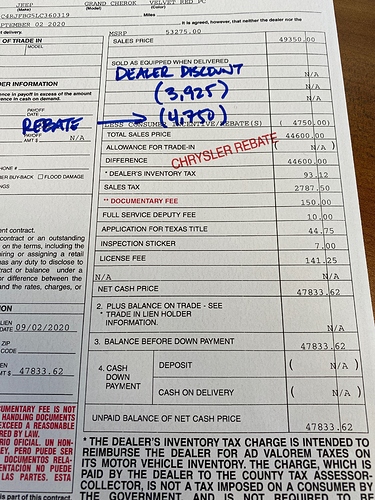 JEEP GRAND CHEROK VELVET RED PC
(Make) (Model) (Color)
C4RJFBG5LC360319 Miles
PTEMBER 02 2020 It is agreed, however, that neither the dealer nor the
t delivery.
OF TRADE IN MSRP 53275.00
MODEL SALES PRICE 49350.00
SOLD AS EQUIPPED WHEN DELIVERED
DEALER DISCOUNT N/A
DER INFORMATION (3,925) N/A
ence in payoff in excess of the amount
ence in cash on demand.
PAYOFF
DATE
REBATE → (4,750) N/A
PAYOFF
AMT $ N/A LESS CONSUMER INCENTIVE/REBATE(S) ( 4750.00)
TOTAL SALES PRICE 44600.00
ALLOWANCE FOR TRADE-IN ( N/A )
CHRYSLER REBATE
PHONE # DIFFERENCE 44600.00
ER BUY-BACK ☐ FLOOD DAMAGE * DEALER'S INVENTORY TAX 93.12
NGS SALES TAX 2787.50
** DOCUMENTARY FEE 150.00
FULL SERVICE DEPUTY FEE 10.00
ent contract. APPLICATION FOR TEXAS TITLE 44.75
contract or an outstanding
on the terms, including the INSPECTION STICKER 7.00
iring or assigning a retail
as any duty to disclose to LICENSE FEE 141.25
tract or balance under a
or difference between the N/A N/A
nd the rates, charges, or
NET CASH PRICE 47833.62
ION 2. PLUS BALANCE ON TRADE - SEE
* TRADE IN LIEN HOLDER
INFORMATION. N/A
LIEN
DATE 09/02/2020
3. BALANCE BEFORE DOWN PAYMENT 47833.62
ZIP
CODE
4. CASH DOWN PAYMENT DEPOSIT ( N/A )
MT $ 47833.62 CASH ON DELIVERY ( N/A )
UNPAID BALANCE OF NET CASH PRICE 47833.62
CUMENTARY FEE IS NOT
HANDLING DOCUMENTS
EXCEED A REASONABLE
RED BY LAW.
RIO OFICIAL. UN HON-
EY, PERO PUEDE SER
DOCUMENTOS RELA-
ENTACIÓN NO PUEDE
LAS PARTES. ESTA
s part of this contract
* THE DEALER'S INVENTORY TAX CHARGE IS INTENDED TO
REIMBURSE THE DEALER FOR AD VALOREM TAXES ON
ITS MOTOR VEHICLE INVENTORY. THE CHARGE, WHICH IS
PAID BY THE DEALER TO THE COUNTY TAX ASSESSOR-
COLLECTOR, IS NOT A TAX IMPOSED ON A CONSUMER BY
THE GOVERNMENT AND IS NOT REQUIRED TO BE